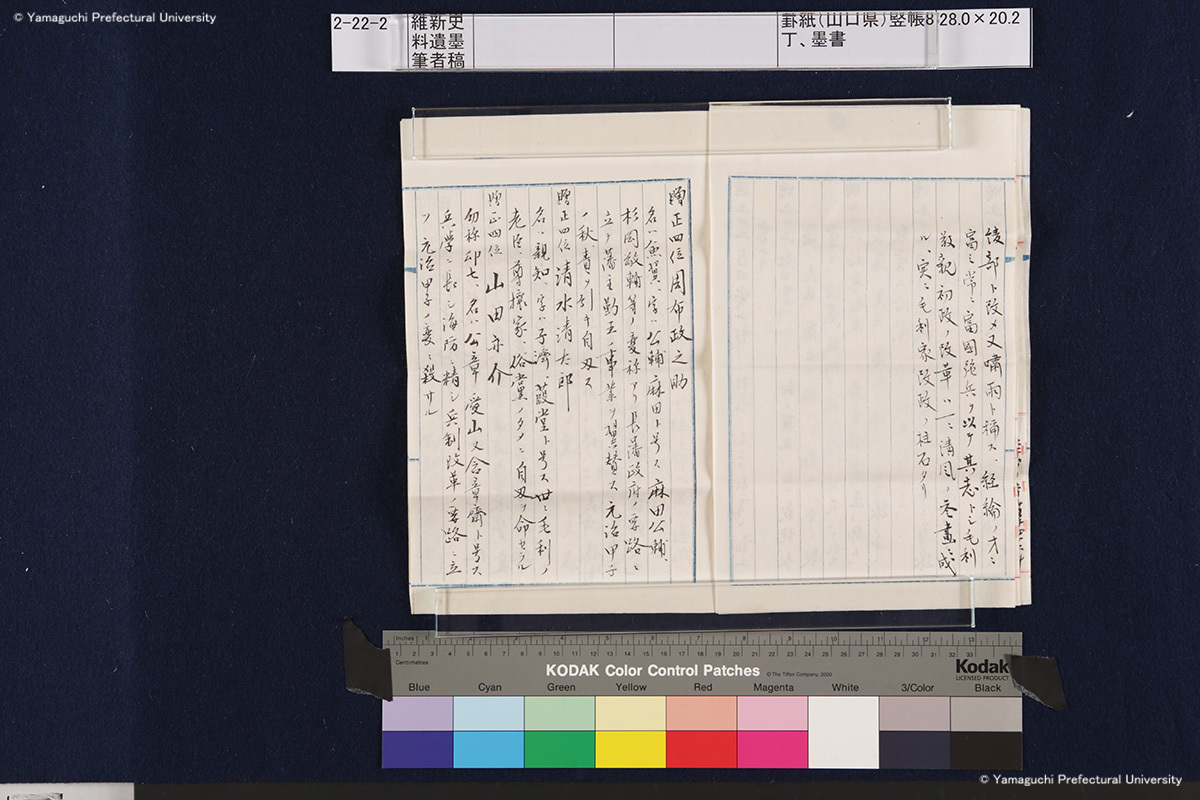 © Yamaguchi Prefectural University
2-22-2
維新史
料遺墨
筆者稿
罫紙(山口県)竪帳8
丁、墨書
28.0×20.2
綾部ト改メ又嘯雨ト稱ス、経綸ノ才ニ
富ミ常ニ富國強兵ヲ以テ其志トシ毛利
敬親初政ノ改革ハ一ニ清風ノ畫成
ル、実ニ毛利家改政ノ柱石タリ
贈正四位周布政之助
名ハ兼翼、字ハ公輔麻田ト号ス麻田公輔、
杉岡敏輔等ノ変称アリ長藩政府ノ要路ニ
立チ藩主勤王ノ事業ヲ翼賛ス元治甲子
ノ秋責ヲ引キ自刃ス
贈正四位清水清太郎
名ハ親知、字ハ子濟、葭堂ト号ス世ニ毛利ノ
老臣、尊攘家、俗黨ノタメニ自刃ヲ命セラル
贈正四位 山田亦介
初称卯七、名ハ公章 愛山又含章齋ト号ス
兵學ニ長シ海防ニ精シ兵制改革ノ要路ニ立
ツ元治甲子ノ変ニ殺サル
Inches
Centimetres
KODAK Color Control Patches
© The Tiffen Company, 2000
Kodak
LICENSED PRODUCT
Blue Cyan Green Yellow Red Magenta White 3/Color Black
© Yamaguchi Prefectural University